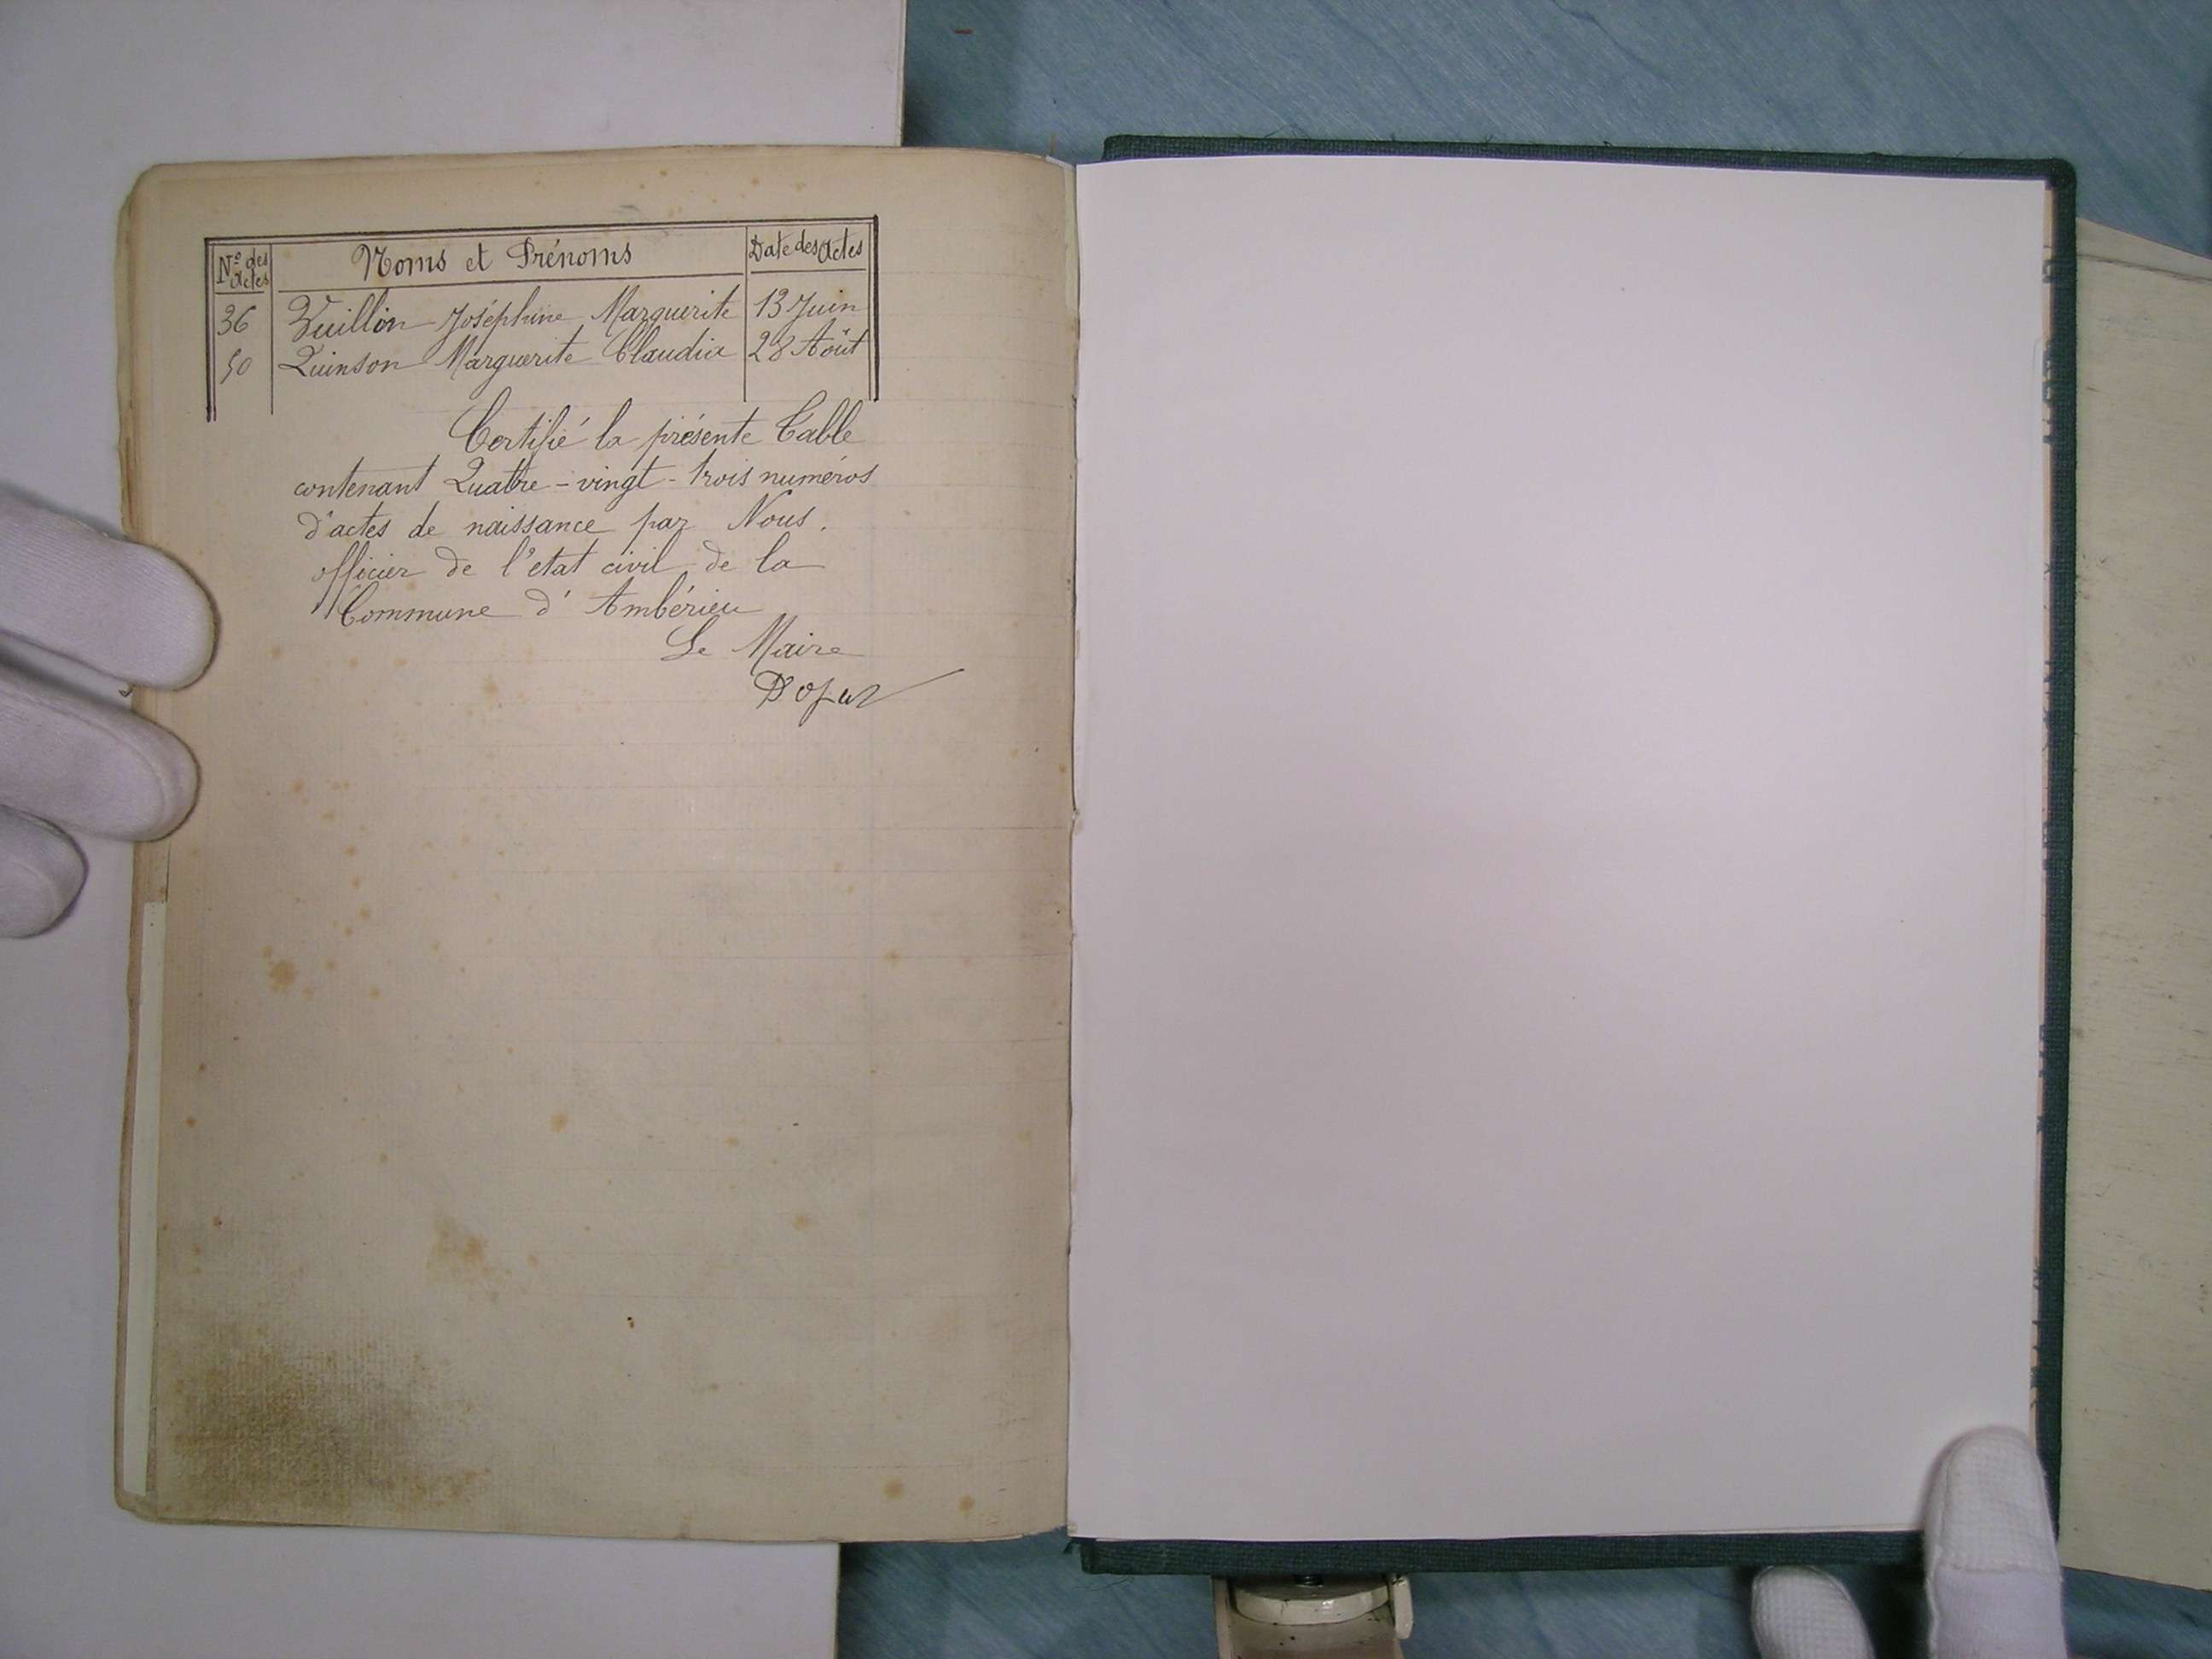 Nos des Actes Noms et Prénoms Date des Actes
36 Vuillon Joséphine Marguerite 13 Juin
50 Quinson Marguerite Claudia 28 Août
Certifié la présente Table
contenant Quatre-vingt-trois numéros
d'actes de naissance par Nous.
officier de l'etat civil de la
Commune d'Ambérieu
Le Maire